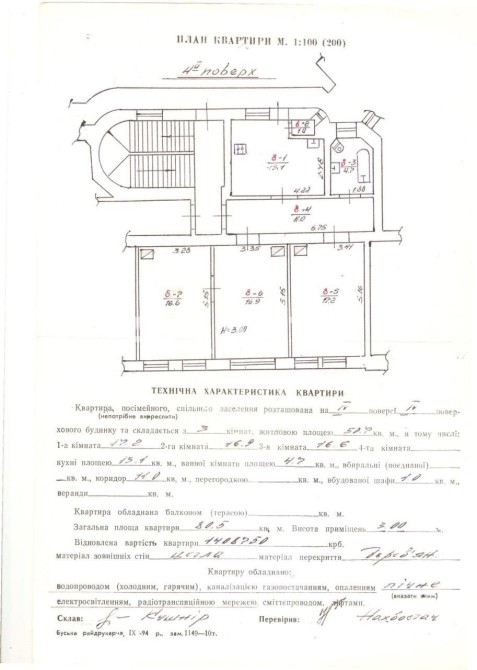 ПЛАН КВАРТИРИ М. 1:100 (200)
4й поверх
8-2
1.0
8-1
13.1
8-3
4.7
4.22
1.88
8-4
11.0
6.75
3.23
3.35
3.41
8-7
16.6
5.15
8-6
16.9
5.15
8-5
17.2
5.16
Н=3.00
ТЕХНІЧНА ХАРАКТЕРИСТИКА КВАРТИРИ
Квартира, посімейного, спільного заселення розташована на IV поверсі IV повер-
(непотрібне викреслити)
хового будинку та складається з 3 кімнат, житловою площею 50.7 кв. м., в тому числі:
1-а кімната 17.2 2-га кімната 16.9 3-я кімната 16.6 4-та кімната
кухні площею 13.1 кв. м., ванної кімнати площею 4.7 кв. м., вбиральні (поєднаної)
кв. м., коридор 11.0 кв. м., перегородкою кв. м., вбудованої шафи 1.0 кв. м.,
веранди кв. м.
Квартира обладнана балконом (терасою) кв. м.
Загальна площа квартири 80.5 кв. м. Висота приміщень 3,00
Відновлена вартість квартири 1408750 крб.
матеріал зовнішніх стін цегла матеріал перекриття дерев'ян.
Квартиру обладнано:
водопроводом (холодним, гарячим), каналізацією газопостачанням, опаленням пічне
(вказати яким)
електросвітленням, радіотрансляційною мережею, сміттєпроводом, ліфтами.
Склав: Кушнір Перевірив:
Буська райдрукарня, IX -94 р., зам. 1140—10т.